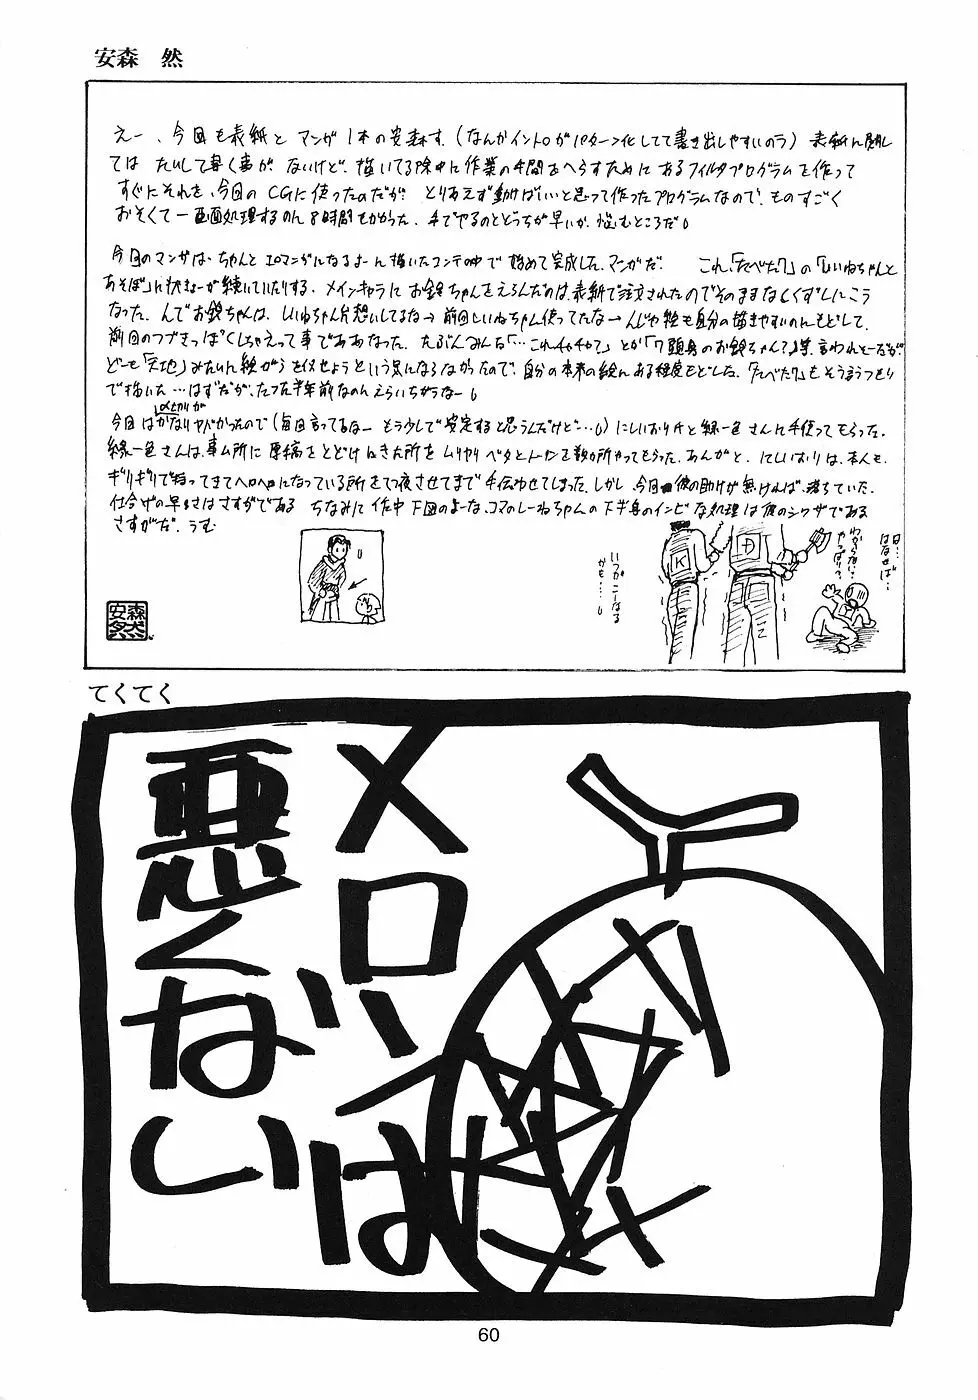 安森　然
えー、今回も表紙と マンガ1本の安森す。(なんかイントロがパターン化してて書き出しやすいのう) 表紙に関し
ては たいして書く事が ないけど、描いてる途中に作業の手間をへらすために あるフィルタプログラムを作って
すぐにそれを、今回の CGに使ったのだが とりあえず動けばいいと思って作ったプログラムなので、ものすごく
おそくて一画面処理するのに8時間もかかった。手でやるのとどっちが早いか 悩むところだ
今回のマンガは、ちゃんと エロマンガになるよーに描いたコンテの中で 始めて完成した、マンガだ。 これ、「たべた?」の「しいねちゃんと
あそぼ」に 続いていたりする。メインキャラに お鈴ちゃんをえらんだのは、表紙で注文されたのでそのままなしくずしにこう
なった。んでお鈴ちゃんは、しいねちゃん片想いしてるな→前回しいねちゃん使ってたな→んじゃ絵も自分の描きやすいのにもどして、
前回のつづきっぽくしちゃえって事でああなった。たぶんみんな「…これチャチャ?」とか「7頭身のお鈴ちゃん?」等、言われそーだが
どーも 絵がらを似せようという気にならなかったので、自分の本来の絵にある程度もどした。「たべた?」もそうするつもり
で描いた…はずだが、たった半年前なのにえらいちがうなー
〆切りが
今回はかなりヤバかったので(毎回言ってるなー もう少しで安定すると思うんだけど…)にしいおりんと緑一色 さんに手伝ってもらった。
緑一色さんは、事ム所に 原稿をとどけにきた所を ムリヤリ ベタとトーンを数カ所やってもらった。ありがと、にしいおりは、本人も、
ギリギリで帰ってきてヘロヘロになっている所をてつ夜させてまで手伝わせてしまった。しかし、今回彼の助けが無ければ、落ちていた。
仕上げの早さはさすがである ちなみに作中 下図のよーな、コマのしーねちゃんの下半身のインビな処理は彼のシワザである
さすがだ。うむ
いつかこーなる
かも…
K
D
Z
わからない…
やっぱり?
はなせば…
安森然
てくてく
メロンは
悪くない
60